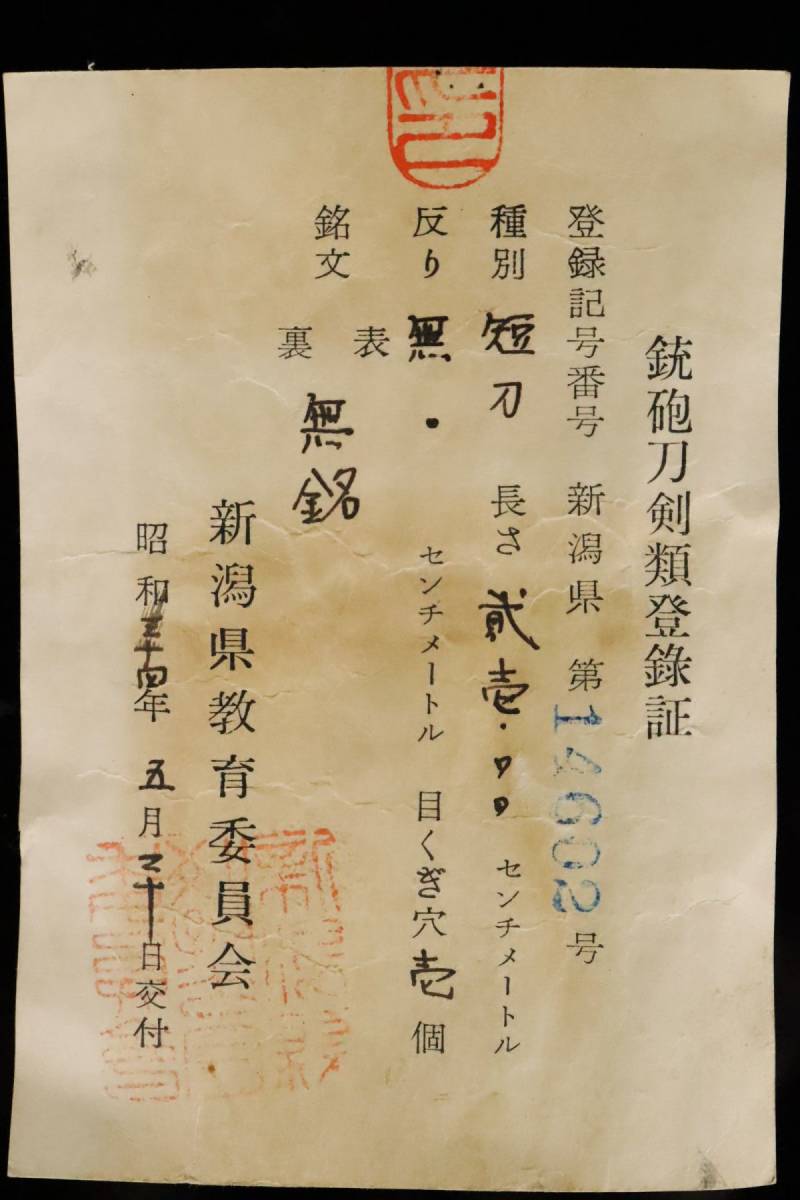 銃砲刀剣類登録証
登録記号番号 新潟県 第14602号
種別 短刀 長さ 貮壱.〇〇 センチメートル
反り 無. センチメートル 目くぎ穴 壱個
銘文 表 無銘
裏
新潟県教育委員会
昭和三十四年 五月二十日交付